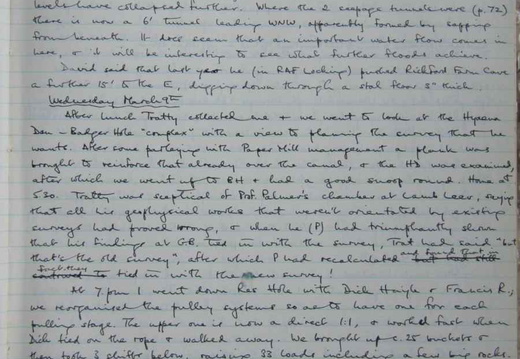 levels have collapsed further. Where the 2 seepage tunnels were (p.72)
there is now a 6' tunnel leading WNW, apparently formed by sapping
from beneath. It does seem that an important water flow comes in
here, & it will be interesting to see what further floods achieve.
David said that last year he (in RAF Locking) pushed Rickford Farm Cave
a further 15' to the E, digging down through a stal floor 3" thick.
Wednesday March 9th
After lunch Tratty collected me & we went to look at the Hyaena
Den - Badger Hole "complex" with a view to planning the survey that he
wants. After some parleying with Paper Mill management a plank was
brought to reinforce that already over the canal, & the HD was examined,
after which we went up to BH & had a good snoop round. Home at
5.30. Tratty was sceptical of Prof. Palmer's chamber at Lamb Leer, saying
that all his geophysical works that weren't orientated by existing
surveys had proved wrong, & when he (P) had triumphantly shown
that his findings at G.B. tied in with the survey, Trat had said "but
that's the old survey", after which P had recalculated and found that
they tied in with the new survey!
At 7pm I went down Res Hole with Dick Haigh & Francis R.,
we reorganised the pulley systems so as to have one for each
pulling stage. The upper one is now a direct 1:1, & worked fast when
Dick tied on the rope & walked away. We brought up c.25 buckets &
then took 3 shifts below, raising 33 loads including a few big rocks.